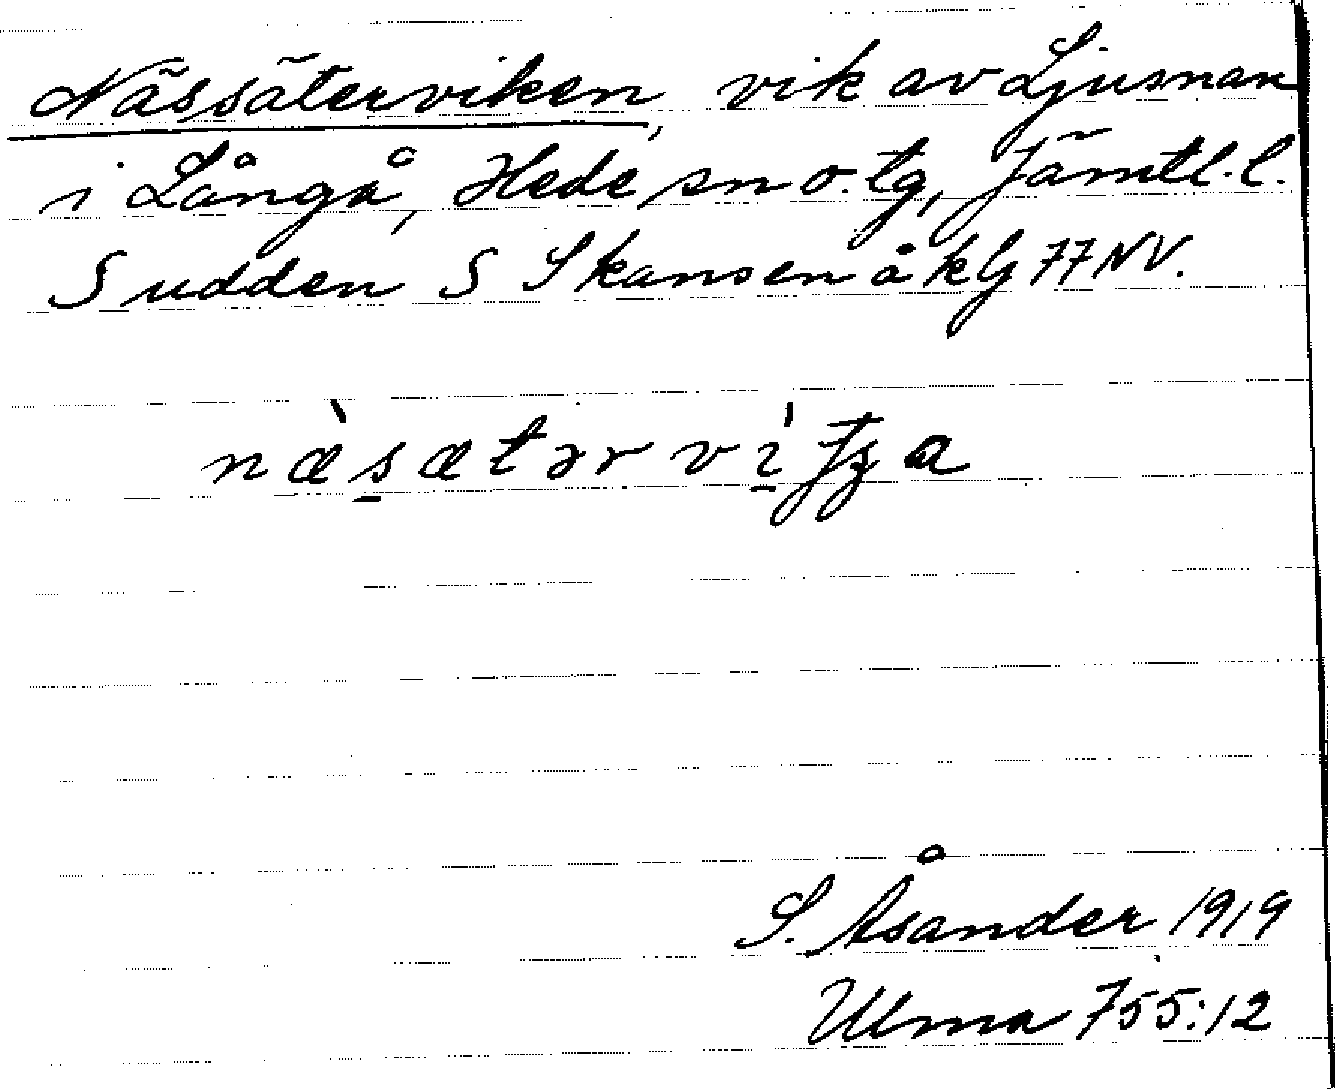 Nässäterviken, vik av Ljusnan
i Långå, Hede sn o. tg, Jämtl. l.
S udden S Skansen å kbl 77 NV.
næ̀sætər
S. Åsander 1919
Ulma 755:12